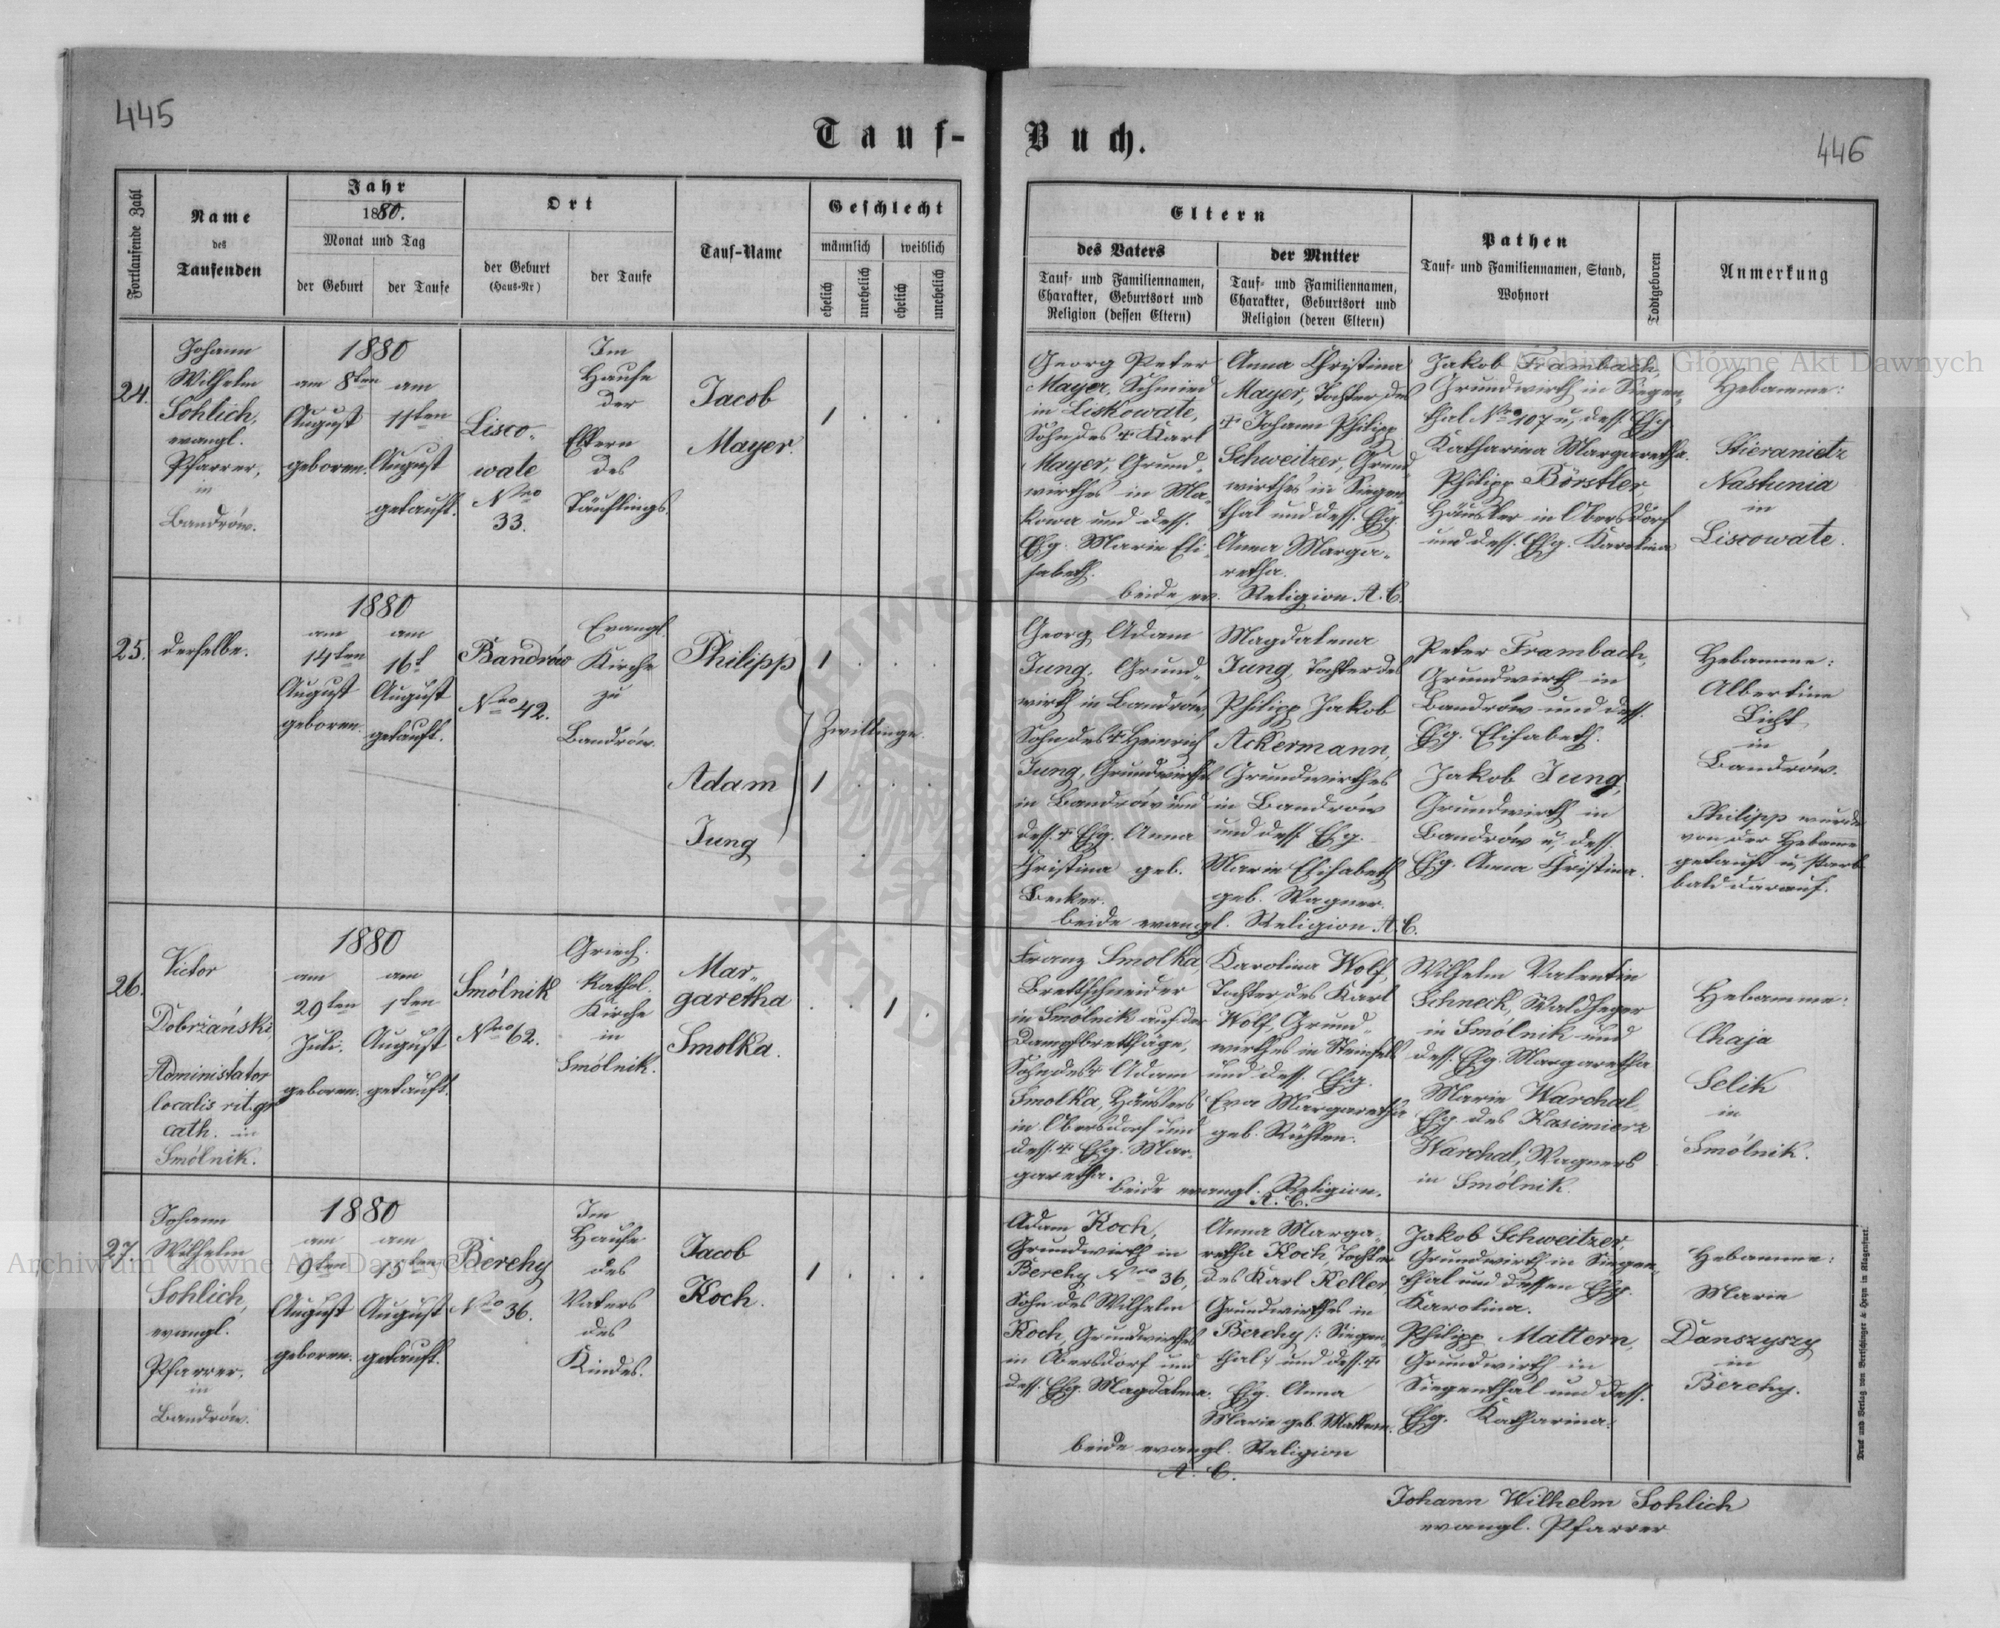 445
446
Tauf-Buch.
Fortlaufende Zahl
Name
des
Taufenden
Jahr
1880.
Monat und Tag
der Geburt
der Taufe
Ort
der Geburt
(Haus-Nr)
der Taufe
Tauf-Name
Geschlecht
männlich
weiblich
ehelich
unehelich
ehelich
unehelich
Eltern
des Vaters
Tauf- und Familiennamen,
Charakter, Geburtsort und
Religion (dessen Eltern)
der Mutter
Tauf- und Familiennamen,
Charakter, Geburtsort und
Religion (deren Eltern)
Pathen
Tauf- und Familiennamen, Stand,
Wohnort
Todtgeboren
Anmerkung
24.
Johann
Wilhelm
Sohlich,
evangl.
Pfarrer,
in
Bandrów.
1880
am 8ten
August
geboren.
am
11ten
August
getauft.
Lisco-
wate
Nro
33.
Im
Hause
der
Eltern
des
Täuflings.
Jacob
Mayer.
1 . . .
Georg Peter
Mayer, Schmied
in Liskowate,
Sohn des † Karl
Mayer, Grund-
wirthes in Ma-
kowa und dess.
Ehg. Marie Eli-
sabeth.
Anna Christina
Mayer, Tochter des
† Johann Philipp
Schweitzer, Grund-
wirthes in Siegen-
thal und dess. Ehg.
Anna Marga-
retha.
beide ev. Religion A. C.
Jakob Frambach,
Grundwirth in Siegen-
thal Nro 107 u. dess. Ehg
Katharina Margaretha.
Philipp Börstler,
Häusler in Obersdorf
und dess. Ehg. Karolina
Hebamme:
Hieranietz
Nastunia
in
Liscowate.
25.
derselbe.
1880
am
14ten
August
geboren.
am
16t
August
getauft.
Bandrów
Nro 42.
Evangl.
Kirche
zu
Bandrów.
Philipp
Adam
Jung
1 . . .
Zwillinge.
1 . . .
Georg Adam
Jung, Grund-
wirth in Bandrów,
Sohn des † Heinrich
Jung, Grundwirthes
in Bandrów und
dess. † Ehg. Anna
Christina geb.
Becker.
Magdalena
Jung, Tochter des
Philipp Jakob
Ackermann,
Grundwirthes
in Bandrów
und dess Ehg.
Marie Elisabeth
geb. Wagner.
beide evangl. Religion A. C.
Peter Frambach,
Grundwirth in
Bandrów und dess.
Ehg. Elisabeth.
Jakob Jung,
Grundwirth in
Bandrów u. dess.
Ehg. Anna Christina.
Hebamme:
Albertine
Licht
in
Bandrów.
Philipp wurde
von der Hebame
getauft u. starb
bald darauf.
26.
Victor
Dobrzański,
Administator
localis rit. gr
cath. in
Smólnik.
1880
am
29ten
Juli.
geboren.
am
1ten
August
getauft.
Smólnik
Nro 62.
Griech.
kathol.
Kirche
in
Smólnik.
Mar-
garetha
Smolka.
. . 1 .
Franz Smolka,
Brettschneider
in Smólnik auf der
Dampfbrettsäge,
Sohn des † Adam
Smolka, Häuslers
in Obersdorf und
dess. † Ehg. Mar-
garetha.
Karolina Wolf,
Tochter des Karl
Wolf, Grund-
wirthes in Steinfels
und dess. Ehg.
Eva Margaretha
geb.
beide evangl. Religion.
A. C.
Wilhelm Valentin
Schneck, Waldheger
in Smólnik und
dess. Ehg. Margaretha
Marie Warchal,
Ehg. des Kasimierz
Warchal, Wagners
in Smólnik.
Hebamme:
Chaja
Selik
in
Smólnik.
27.
Johann
Wilhelm
Sohlich,
evangl.
Pfarrer,
in
Bandrów.
1880
am
9ten
August
geboren.
am
15ten
August
getauft.
Berehy
Nro 36.
Im
Hause
des
Vaters
des
Kindes.
Jacob
Koch.
1 . . .
Adam Koch,
Grundwirth in
Berehy Nro 36,
Sohn des Wilhelm
Koch, Grundwirthes
in Obersdorf und
dess. Ehg. Magdalena.
Anna Marga-
retha Koch, Tochter
des Karl Keller,
Grundwirthes in
Berehy /: Siegen-
thal :/ und dess. †
Ehg. Anna
Marie geb. Mattern.
beide evangl. Religion
A. C.
Jakob Schweitzer,
Grundwirth in Siegen-
thal und dessen Ehg.
Karolina.
Philipp Mattern,
Grundwirth in
Siegenthal und dess.
Ehg. Katharina.
Hebamme:
Marie
Danszyszy
in
Berehy.
Johann Wilhelm Sohlich
evangl. Pfarrer
Druck und Verlag von Bertschinger & Heyn in Klagenfurt.
Archiwum Główne Akt Dawnych
Archiwum Główne Akt Dawnych